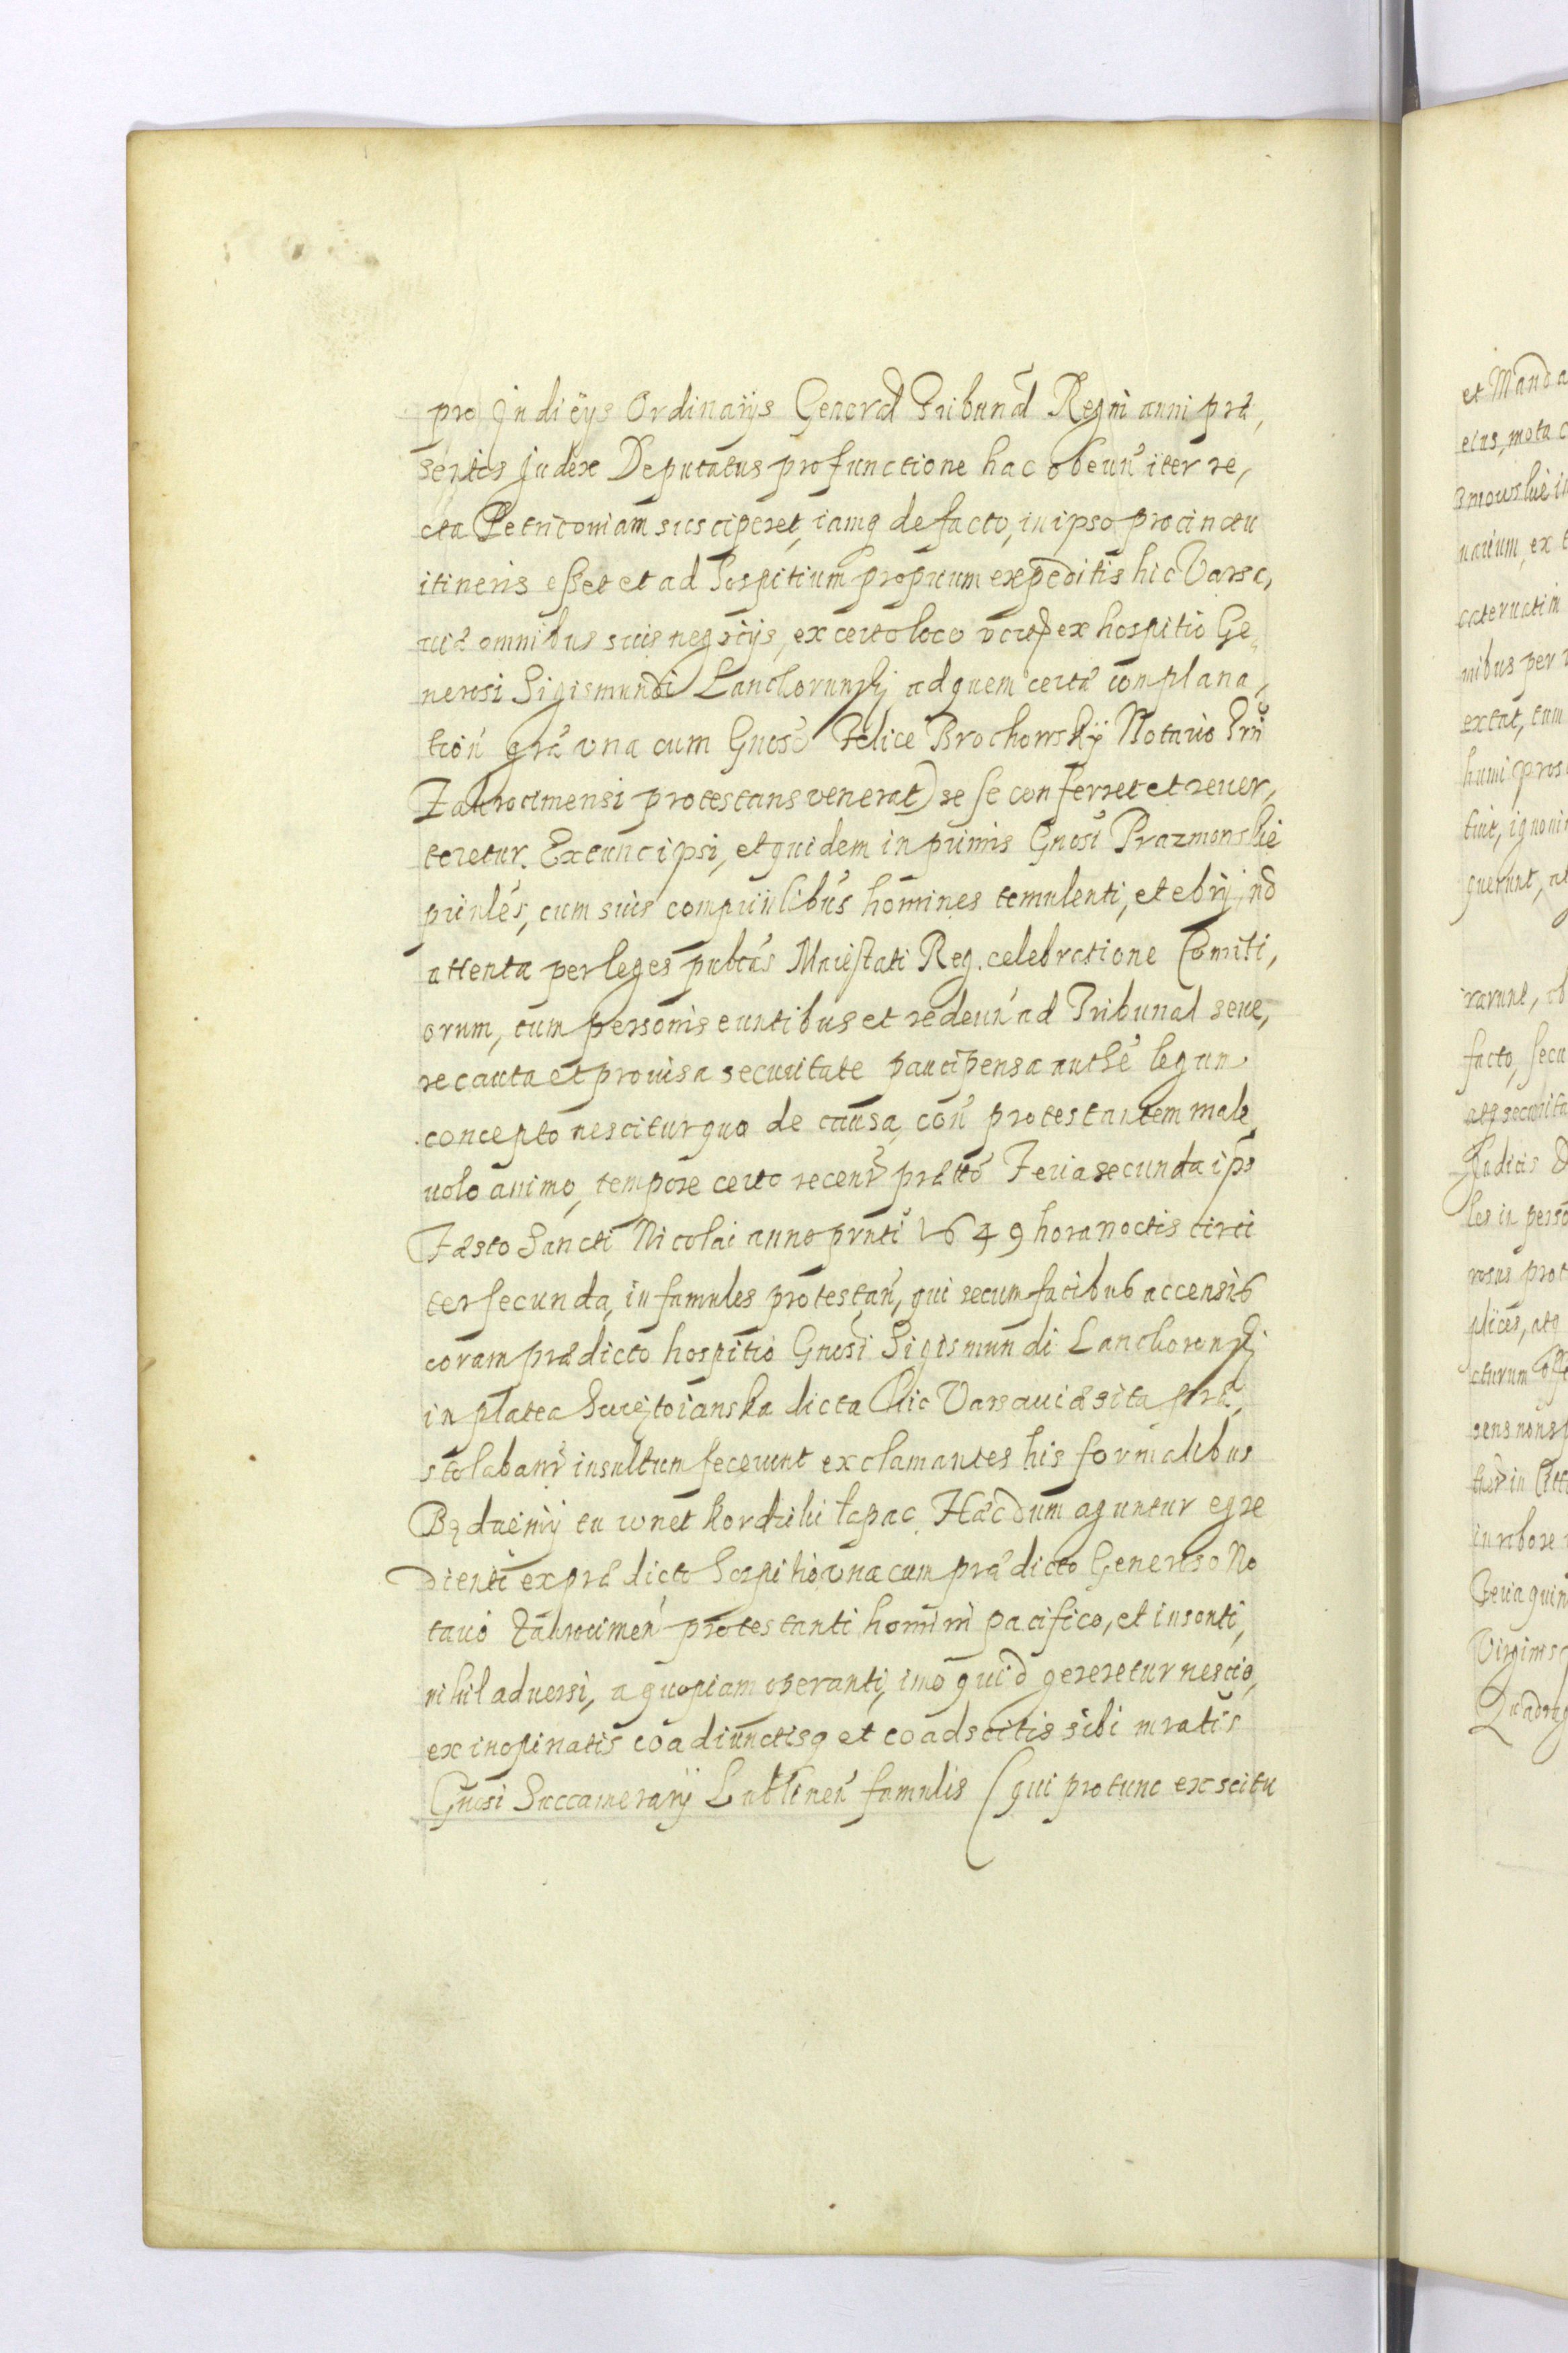 pro Judicijs Ordinarijs General Tribunal Regni anni præ,
sentis Judex Deputatus pro functione hac obeun̄ iter re,
cta Petricouiam susciperet, iamq de facto, in ipso procinctu
itineris esset et ad hospitium proprium expeditis hic Varsa,
uiæ omnibus suis negotijs, ex certo loco ex hospitio Ge
nerosi Sigismundi Lanckorunskij ad quem certæ complana,
tion̄ grã vna cum Gnōso Felice Brochowskij Notario Trri
Zakrocimensi protestans venerat) se se conferret et reuer,
teretur. Extunc ipsi, et quidem in primis Gnōsi Prazmouskie
prīnles, cum suis comprīnlibus homines temulenti, et ebrij, nō
attenta per leges pubcas Maiestati Reg. celebratione Comiti,
orum, tum personis euntibus et redeun̄ ad Tribunal seue,
re cauta et prouisa securitate paucipensa authē legum
concepto nescitur quo de causa, con̄ protestantem male
uolo animo, tempore certo recenr̄ præterō Feria secunda ipso
Fæsto Sancti Nicolai anno prnti 1649 hora noctis circi
ter secunda, in famulos protestan̄, qui secum facibus accensis
coram prædicto hospitio Gnōsi Sigismundi Lanckoronskij
in platea Swiętoianska dicta hic Varsauiæ sita præ,
stolabanr̄ insultum fecerunt exclamantes his formalibus
Będziemy tu wnet kordziki łapac. Hæc dum aguntur egre
dienti ex prædicto hospitio vna cum prædicto Generoso No
tario Zakrocimen̄ protestanti homini pacifico, et insonti,
nihil aduersi, a quopiam speranti, imo quid gereretur nescio,
ex inopinatis coadiunctisq et coadscitis sibi mratis
Gnōsi Succamerarij Lublinen̄ famulis (qui pro tunc ex scitu
et Manda
eius, mota c
uarium, ex
cateruatim
nibus per
extat, tum
humi pros
tiut, ignomi
querunt, at
rarunt, ob
facto, secu
atq securita
Judicis D
les in perso
rosus prot
plices, atq
cturum
sens non
in robore
Feria quin
Virginis